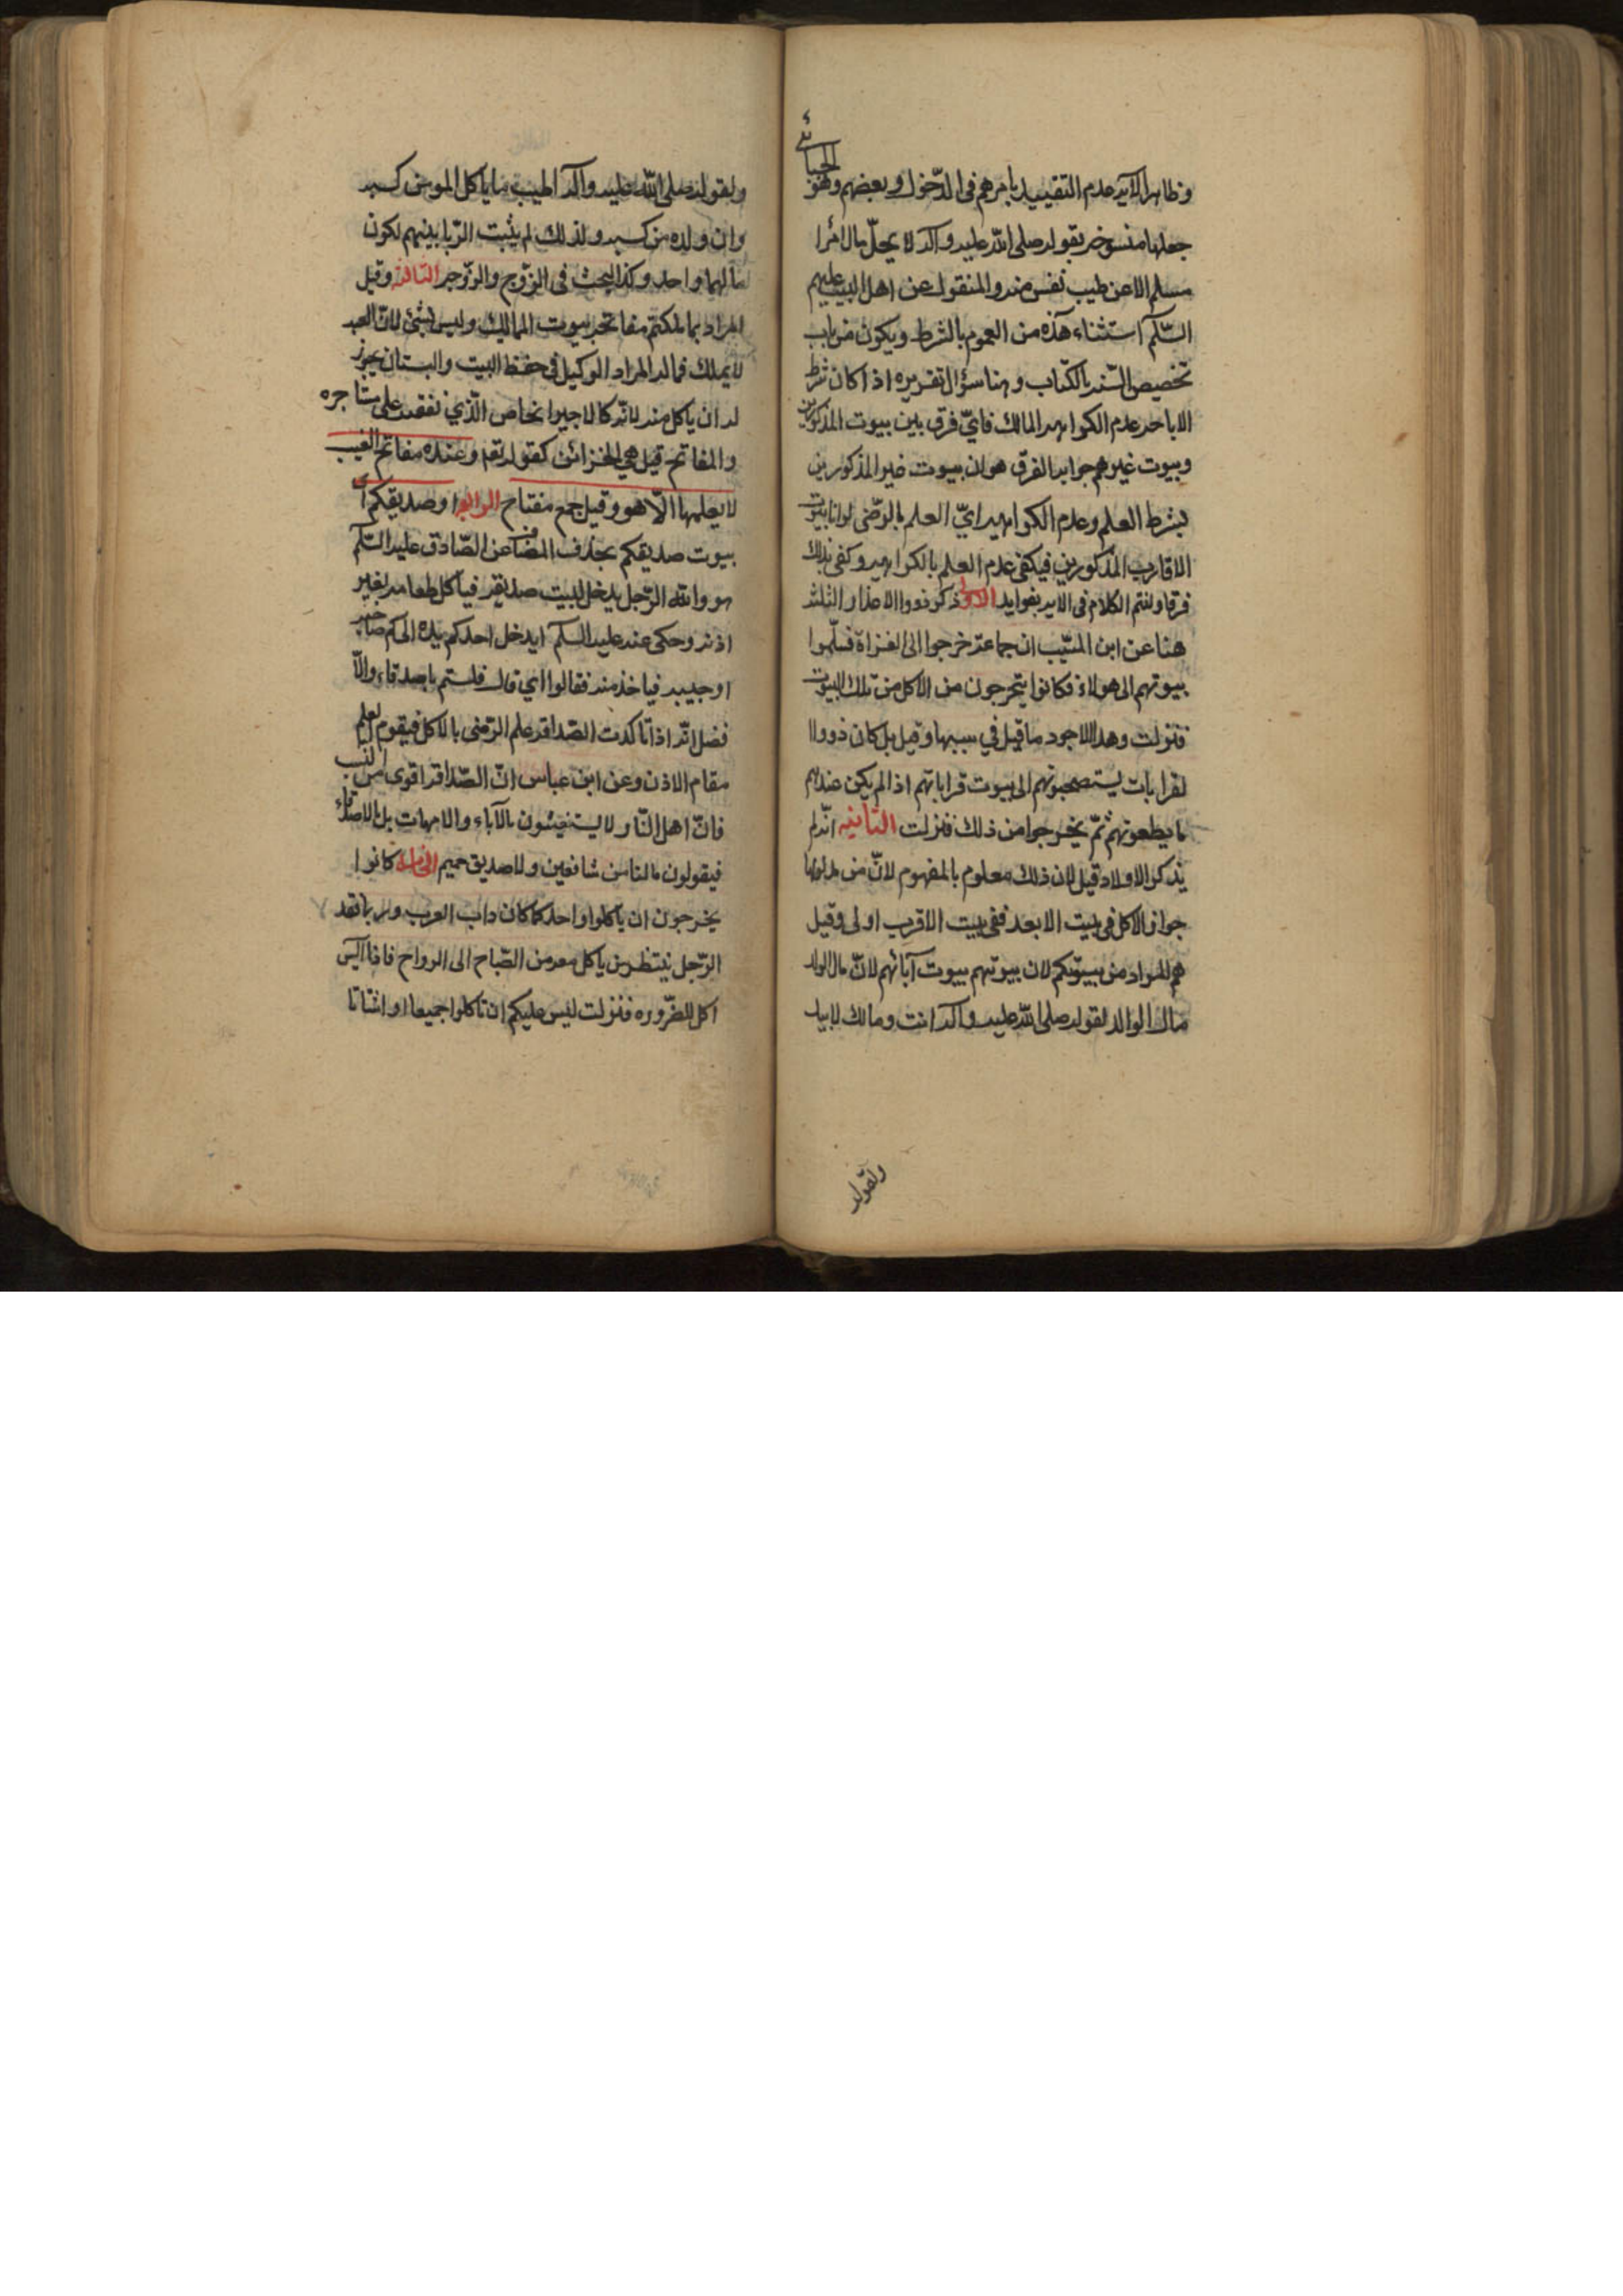 وظاهر الآية عدم التقييد بامرهم فى الدّخول وبعضهم وهو
الجبائي
جعلها منسوخة بقوله صلى الله عليه وآله لا يحلّ مال امرا
مسلم الا عن طيب نفس منه والمنقول عن اهل البيت عليهم
السّلام استثناء هذه من العموم بالشرط ويكون من باب
تخصيص السّنه بالكتاب وهنا سؤال تقريره اذا كان شرط
الاباحه عدم الكراهه المالك فايّ فرق بين بيوت المذكورين
وبيوت غيرهم جوابه الفرق هو ان بيوت غير المذكورين
بشرط العلم وعدم الكراهيه ايّ العلم بالرّضى لو انا بيوت
الاقارب المذكورين فيكفى عدم العلم بالكراهيه وكفى بذلك
فرقا ولنتم الكلام فى الايه بفوايد الاولى ذكر ذووا الاعذار الثلثه
هنا عن ابن المسّيب ان جماعة خرجوا الى الغزاة فسلّموا
بيوتهم الى هولاء فكانوا يتحرجون من الاكل من تلك البيوت
فنزلت وهذا الاجود ما قيل في سببها وقيل بل كان ذووا ا
لقرابات يستصحبونهم الى بيوت قراباتهم اذا لم يكن عندهم
ما يطعمونهم ثمّ يخرجوا من ذلك فنزلت الثانيه انّه لم
يذكر الاولاد قيل لان ذلك معلوم بالمفهوم لانّ من مدلولها
جواز الاكل فى بيت الابعد ففى بيت الاقرب اولى وقيل
هم المراد من بيوتكم لان بيوتهم بيوت آبائهم لانّ مال الولد
مال الوالد لقوله صلى الله عليه وآله انت ومالك لابيك
ولقوله
ولقوله صلى الله عليه وآله اطيب ما ياكل المومن كسبه
وان ولده من كسبه ولذلك لم يثبت الرّبا بينهم لكون
مالهما واحد وكذا البحث فى الزّوج والزّوجه الثالثه وقيل
المراد بما ملكتم مفاتحه بيوت المماليك وليس بشئ لانّ العبد
لا يملك فماله المراد الوكيل فى حفظ البيت والبستان يجوز
له ان ياكل منه لانّه كالاجير الخاص الّذي نفقته على مستاجره
والمفاتح قيل هي الخزائن كقوله تعم وعنده مفاتح الغيب
لا يعلمها الّا هو وقيل جمع مفتاح الرابعه او صديقكم اى
بيوت صديقكم بحذف المضاف عن الصّادق عليه السّلم
هو والله الرّجل يدخل لبيت صديقه فياكل طعامه بغير
اذنه وحكى عنه عليه السلم ايدخل احدكم يده الى كم صاحبه
او جيبه فياخذ منه فقالوا اي قال فلستم باصدقاء والّا
فضل انّه اذا تاكدت الصّداقه علم الرّضى بالاكل فيقوم العلم
مقام الاذن وعن ابن عباس انّ الصّداقه اقوى من النسب
فانّ اهل النّار لا يستغيثون بالآباء والامهات بل بالاصدقاء
فيقولون ما لنا من شافعين ولا صديق حميم الخامسه كانوا
يخرجون ان ياكلوا واحدا كما كان داب العرب وربّما قعد
الرّجل ينتظر من ياكل معه من الصّباح الى الرواح فاذا ايس
اكل للضّروره فنزلت ليس عليكم ان تاكلوا جميعا او اشتاتا